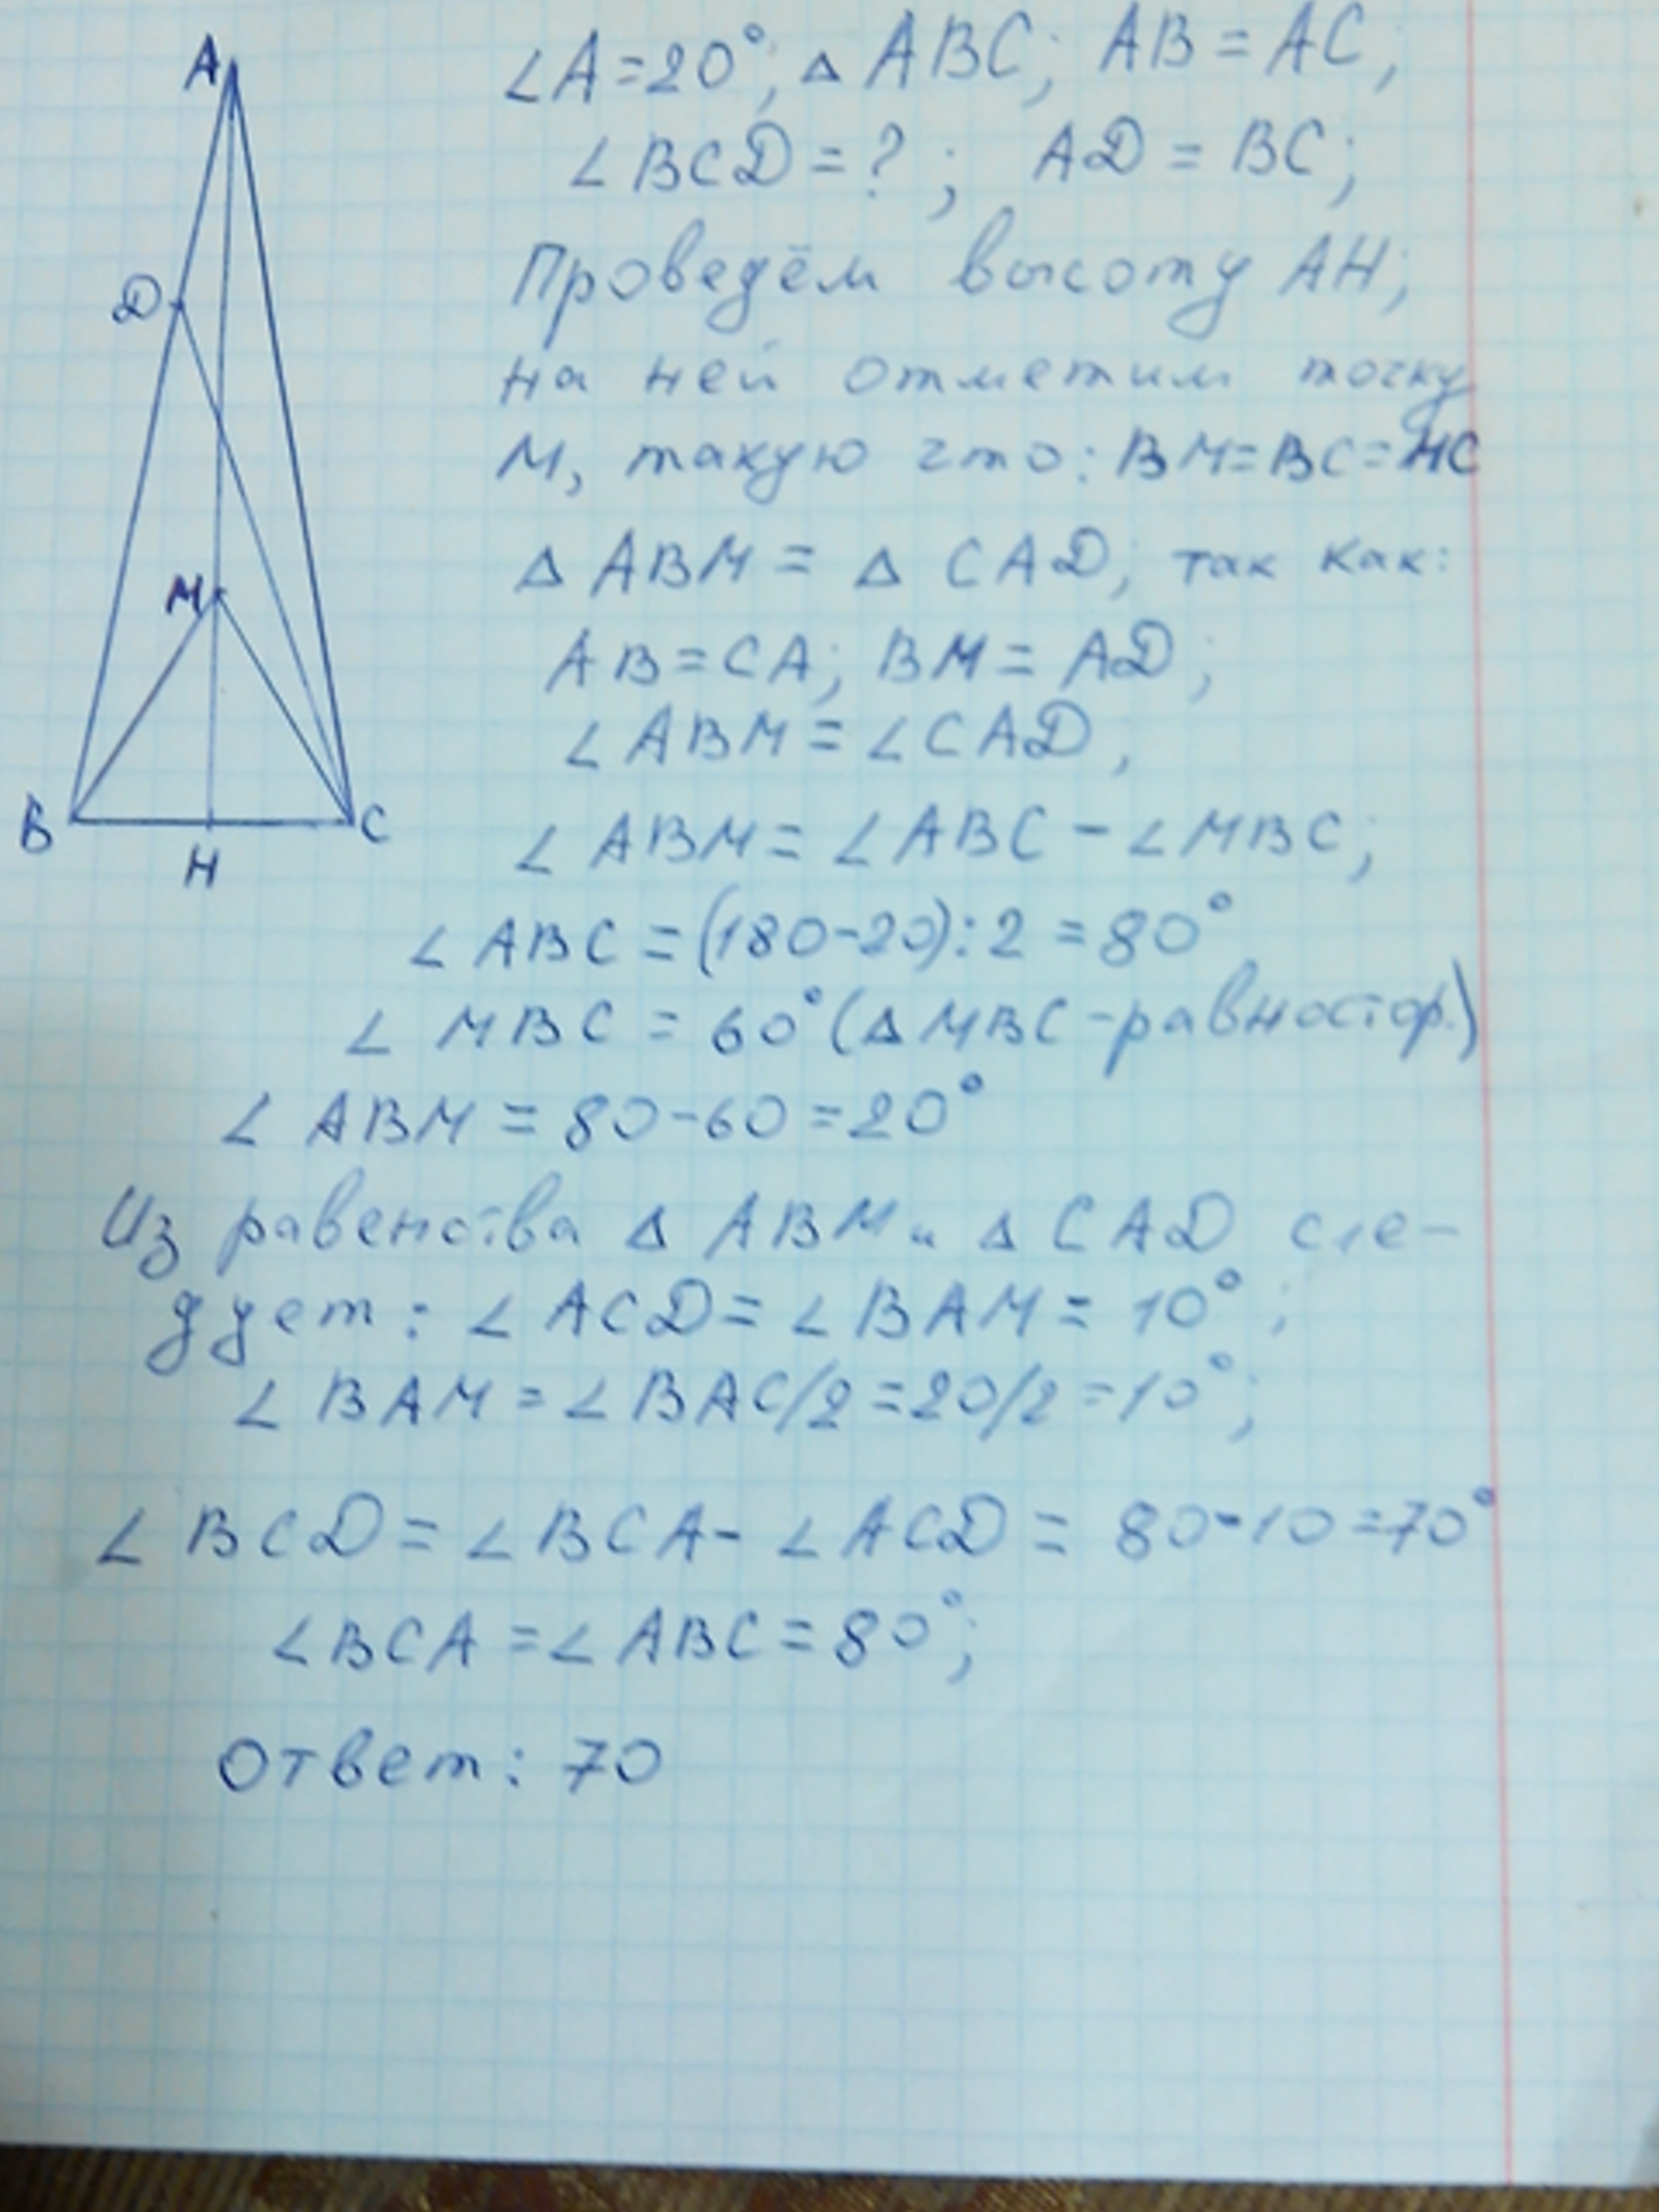 A
D
M
B
C
H
∠A=20°; △ABC; AB=AC;
∠BCD=?; AD=BC;
Проведём высоту AH;
на ней отметим точку
M, такую что: BM=BC=MC
△ABM = △CAD; так как:
AB=CA; BM=AD;
∠ABM=∠CAD,
∠ABM=∠ABC-∠MBC;
∠ABC=(180-20):2=80°
∠MBC=60°(△MBC-равностор.)
∠ABM=80-60=20°
Из равенства △ABM и △CAD сле-
дует: ∠ACD=∠BAM=10°;
∠BAM=∠BAC/2=20/2=10°;
∠BCD=∠BCA-∠ACD=80-10=70°
∠BCA=∠ABC=80°;
Ответ: 70